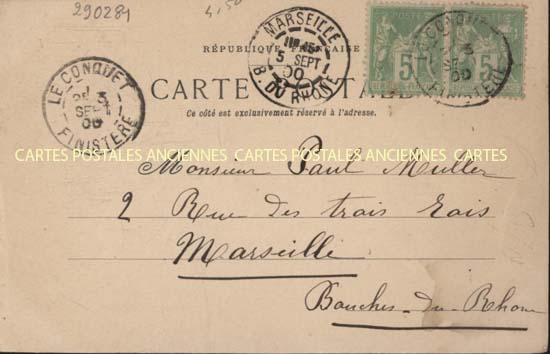 290284
4,50
RÉPUBLIQUE FRANÇAISE
CARTE POSTALE
Ce côté est exclusivement réservé à l'adresse.
MARSEILLE
5 SEPT
00
B. DU RHÔNE
POSTES
5
5
LE CONQUET
3
SEPT
00
FINISTÈRE
LE CONQUET
3
00
FINISTÈRE
CARTES POSTALES ANCIENNES CARTES POSTALES ANCIENNES
Monsieur Paul Muller
2 Rue des trois rois
Marseille
Bouches-du-Rhone